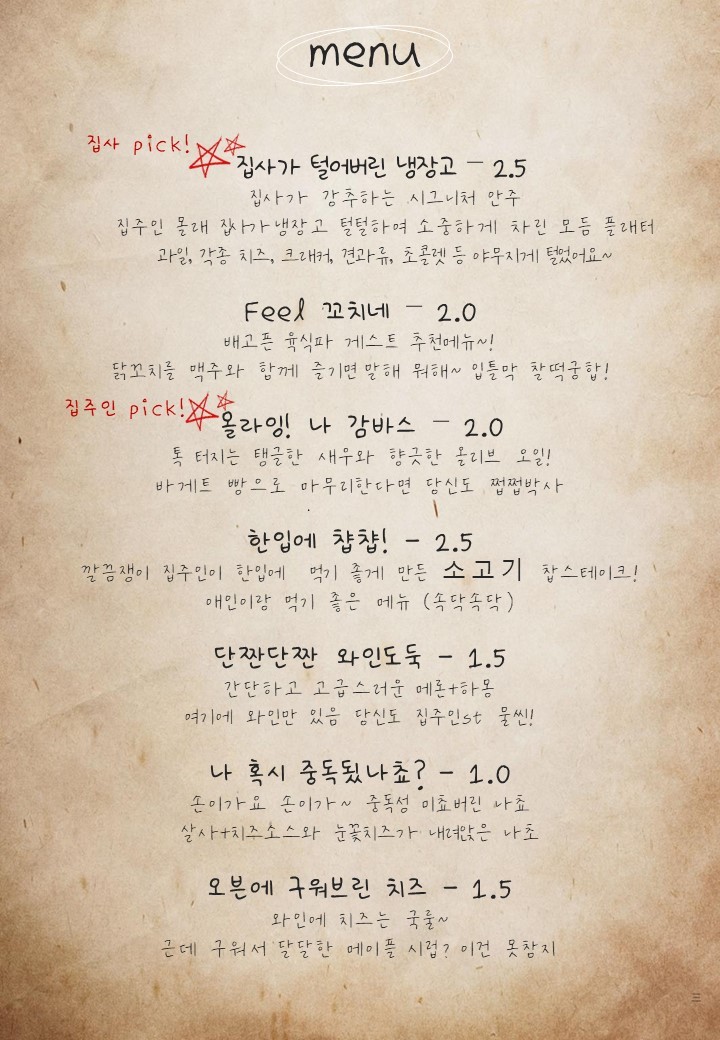 menu
집사 pick!
집사가 털어버린 냉장고 - 2.5
집사가 강추하는 시그니처 안주
집주인 몰래 집사가 냉장고 털털하여 소중하게 차린 모듬 플래터
과일, 각종 치즈, 크래커, 견과류, 초콜렛 등 야무지게 털었어요~
Feel 꼬치네 - 2.0
배고픈 육식파 게스트 추천메뉴~!
닭꼬치를 맥주와 함께 즐기면 말해 뭐해~ 입틀막 찰떡궁합!
집주인 pick!
올라잇! 나 감바스 - 2.0
톡 터지는 탱글한 새우와 향긋한 올리브 오일!
바게트 빵으로 마무리한다면 당신도 쩝쩝박사
한입에 챱챱! - 2.5
깔끔쟁이 집주인이 한입에 먹기 좋게 만든 소고기 찹스테이크!
애인이랑 먹기 좋은 메뉴 (속닥속닥)
단짠단짠 와인도둑 - 1.5
간단하고 고급스러운 메론+하몽
여기에 와인만 있음 당신도 집주인st 물씬!
나 혹시 중독됬나쵸? - 1.0
손이가요 손이가~ 중독성 미쵸버린 나쵸
살사+치즈소스와 눈꽃치즈가 내려앉은 나쵸
오븐에 구워브린 치즈 - 1.5
와인에 치즈는 국룰~
근데 구워서 달달한 메이플 시럽? 이건 못참지
三